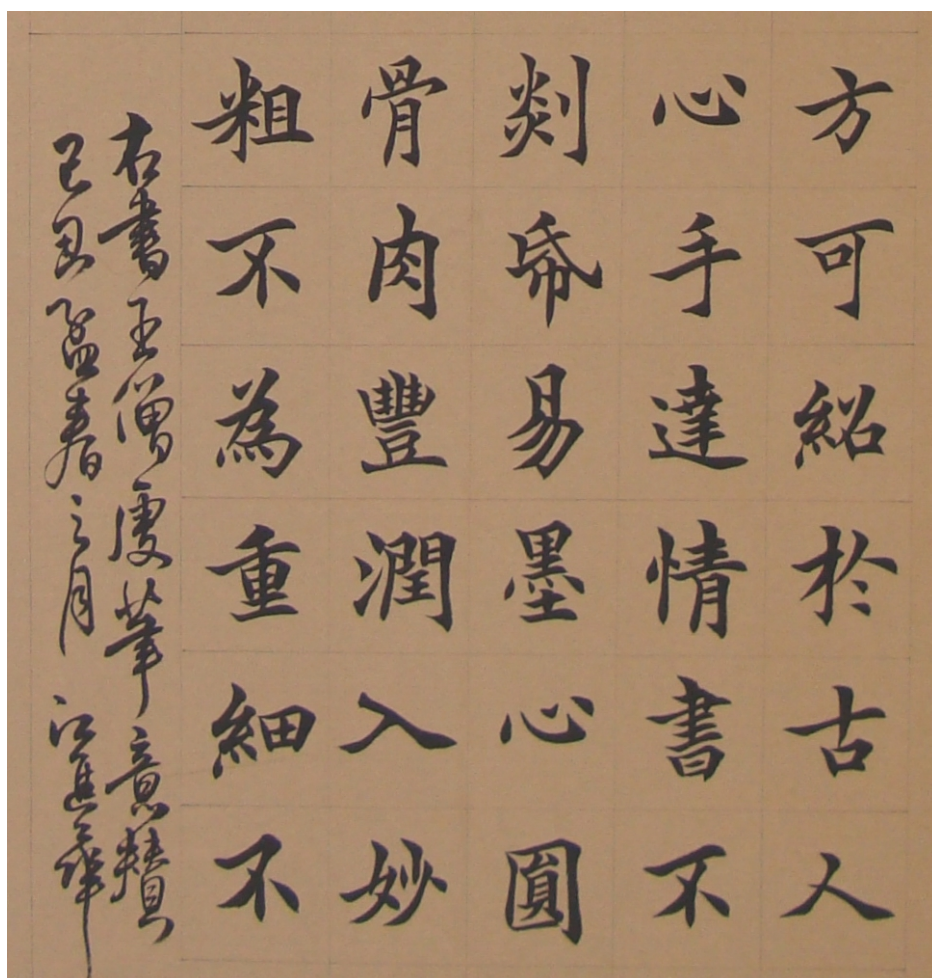 方可紹於古人
心手達情書不
剡帋易墨心圓
骨肉豐潤入妙
粗不為重細不
右書王僧虔筆意贊
己丑孟春之月 江進華